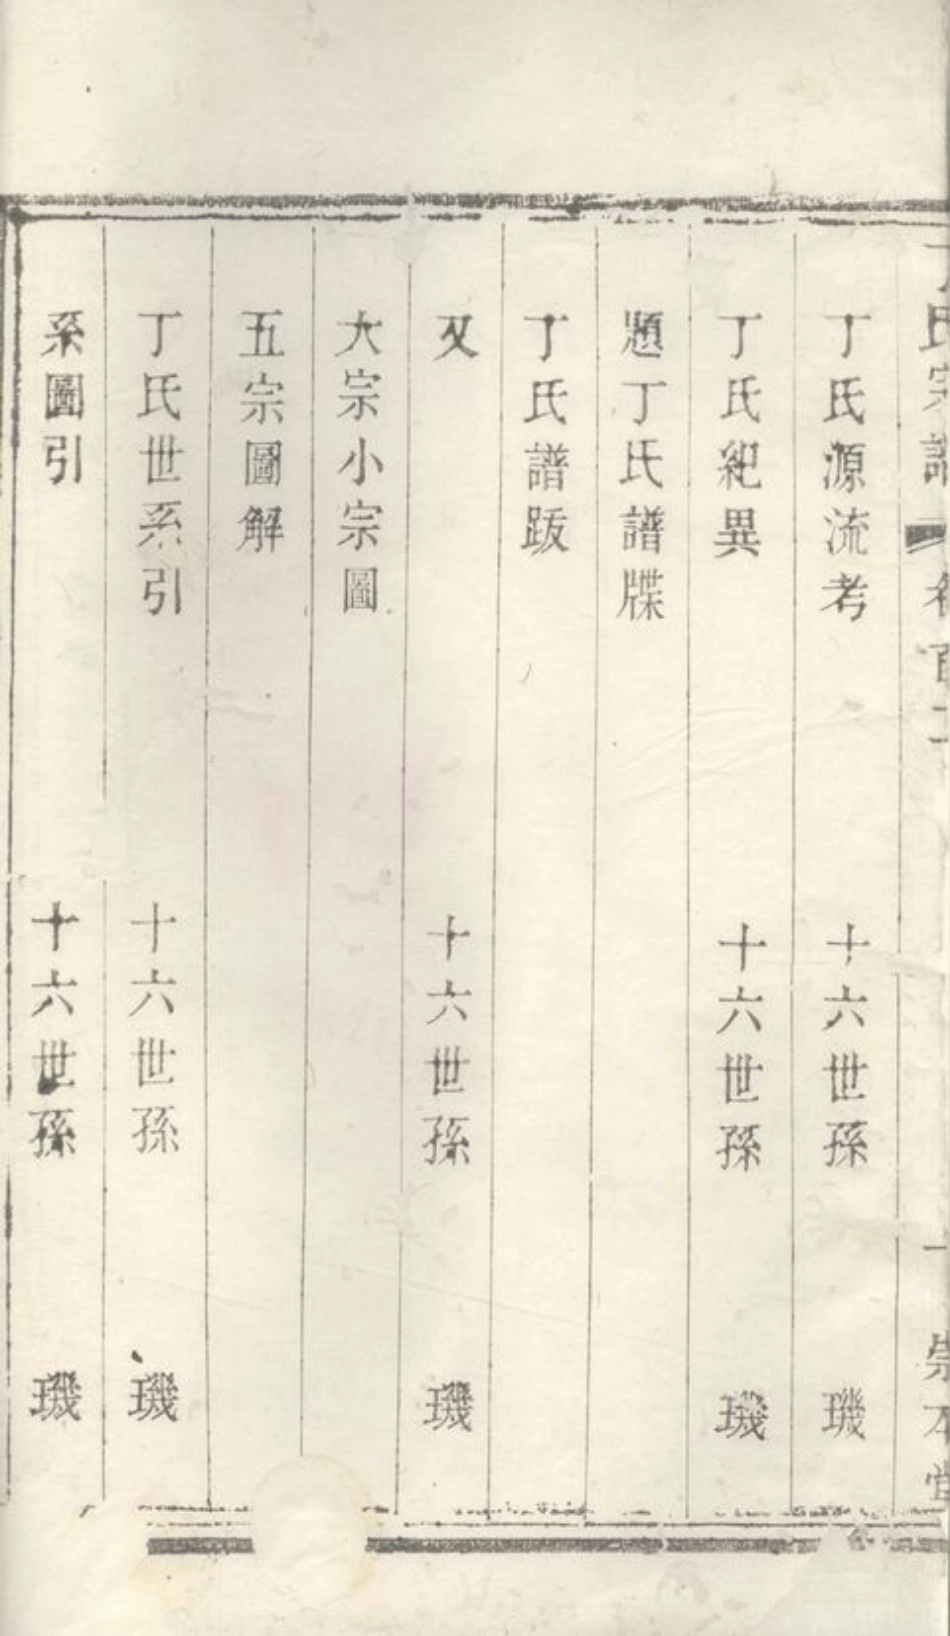 丁氏宗譜 卷首二 一 崇本堂
丁氏源流考 十六世孫 璣
丁氏紀異 十六世孫 璣
題丁氏譜牒
丁氏譜跋
又 十六世孫 璣
大宗小宗圖
五宗圖解
丁氏世系引 十六世孫 璣
系圖引 十六世孫 璣